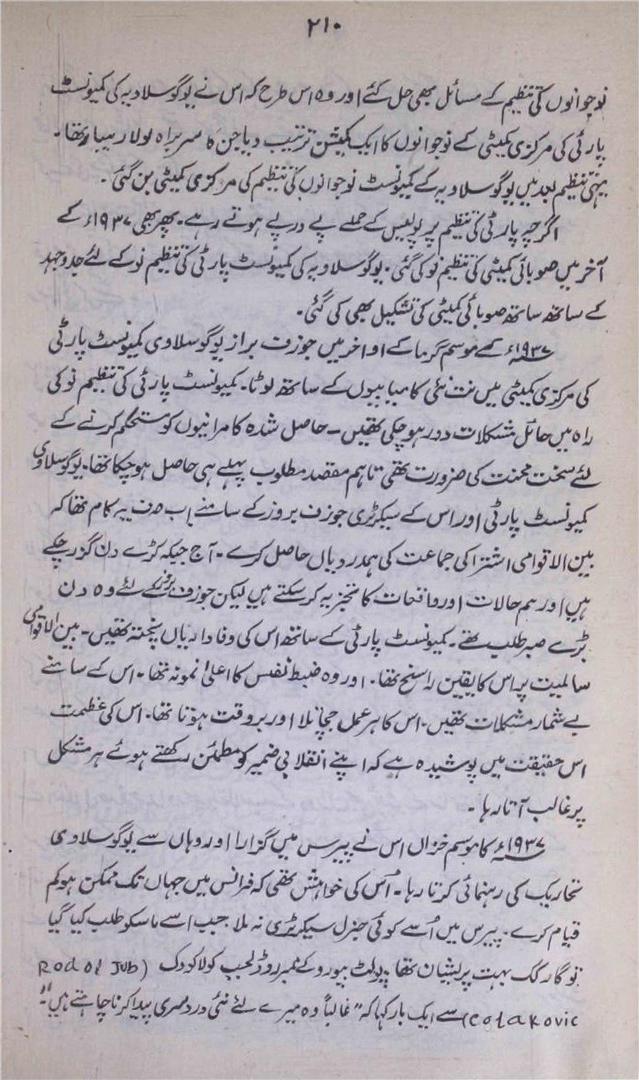 ۲۱۰
نوجوانوں کی تنظیم کے مسائل بھی حل کئے اور وہ اس طرح کہ اس نے یوگوسلاویہ کی کمیونسٹ
پارٹی کی مرکزی کمیٹی کے نوجوانوں کا ایک کمیشن ترتیب دیا جن کا سربراہ لولا ریبار تھا۔
یہی تنظیم بعد میں یوگوسلاویہ کے کمیونسٹ نوجوانوں کی تنظیم کی مرکزی کمیٹی بن گئی۔
اگرچہ پارٹی کی تنظیم پر پولیس کے حملے پے درپے ہوتے رہے۔ پھر بھی ۱۹۳۷ء کے
آخر میں صوبائی کمیٹی کی تنظیم نو کی گئی۔ یوگوسلاویہ کی کمیونسٹ پارٹی کی تنظیم نو کے لئے جدوجہد
کے ساتھ ساتھ صوبائی کمیٹی کی تشکیل بھی کی گئی۔
۱۹۳۷ء کے موسم گرما کے اواخر میں جوزف براز یوگوسلاوی کمیونسٹ پارٹی
کی مرکزی کمیٹی میں نت نئی کامیابیوں کے ساتھ لوٹا۔ کمیونسٹ پارٹی کی تنظیم نو کی
راہ میں حائل مشکلات دور ہو چکی تھیں۔ حاصل شدہ کامرانیوں کو مستحکم کرنے کے
لئے سخت محنت کی ضرورت تھی تاہم مقصد مطلوب پہلے ہی حاصل ہو چکا تھا۔ یوگوسلاوی
کمیونسٹ پارٹی اور اس کے سیکرٹری جوزف بروز کے سامنے اب صرف یہ کام تھا کہ
بین الاقوامی اشتراکی جماعت کی ہمدردیاں حاصل کرے۔ آج جبکہ کڑے دن گزر چکے
ہیں اور ہم حالات اور واقعات کا تجزیہ کر سکتے ہیں لیکن جوزف بروز کے لئے وہ دن
بڑے صبر طلب تھے۔ کمیونسٹ پارٹی کے ساتھ اس کی وفاداریاں پختہ تھیں۔ بین الاقوامی
سالمیت پر اس کا یقین راسخ تھا۔ اور وہ ضبط نفس کا اعلیٰ نمونہ تھا۔ اس کے سامنے
بے شمار مشکلات تھیں۔ اس کا ہر عمل جچا تلا اور بروقت ہوتا تھا۔ اس کی عظمت
اس حقیقت میں پوشیدہ ہے کہ اپنے انقلابی ضمیر کو مطمئن رکھتے ہوئے ہر مشکل
پر غالب آتا رہا۔
۱۹۳۷ء کا موسم خزاں اس نے پیرس میں گزارا اور وہاں سے یوگوسلاوی
تحاریک کی رہنمائی کرتا رہا۔ اُس کی خواہش تھی کہ فرانس میں جہاں تک ممکن ہو کم
قیام کرے۔ پیرس میں اُسے کوئی جنرل سیکرٹری نہ ملا جب اسے ماسکو طلب کیا گیا
تو گارکک بہت پریشان تھا۔ پولٹ بیورو کے ممبر روڈلجب کولاکودک (Rodol Jub
Colakovic) سے ایک بار کہا کہ "غالباً وہ میرے لئے نئی درد سری پیدا کرنا چاہتے ہیں"۔